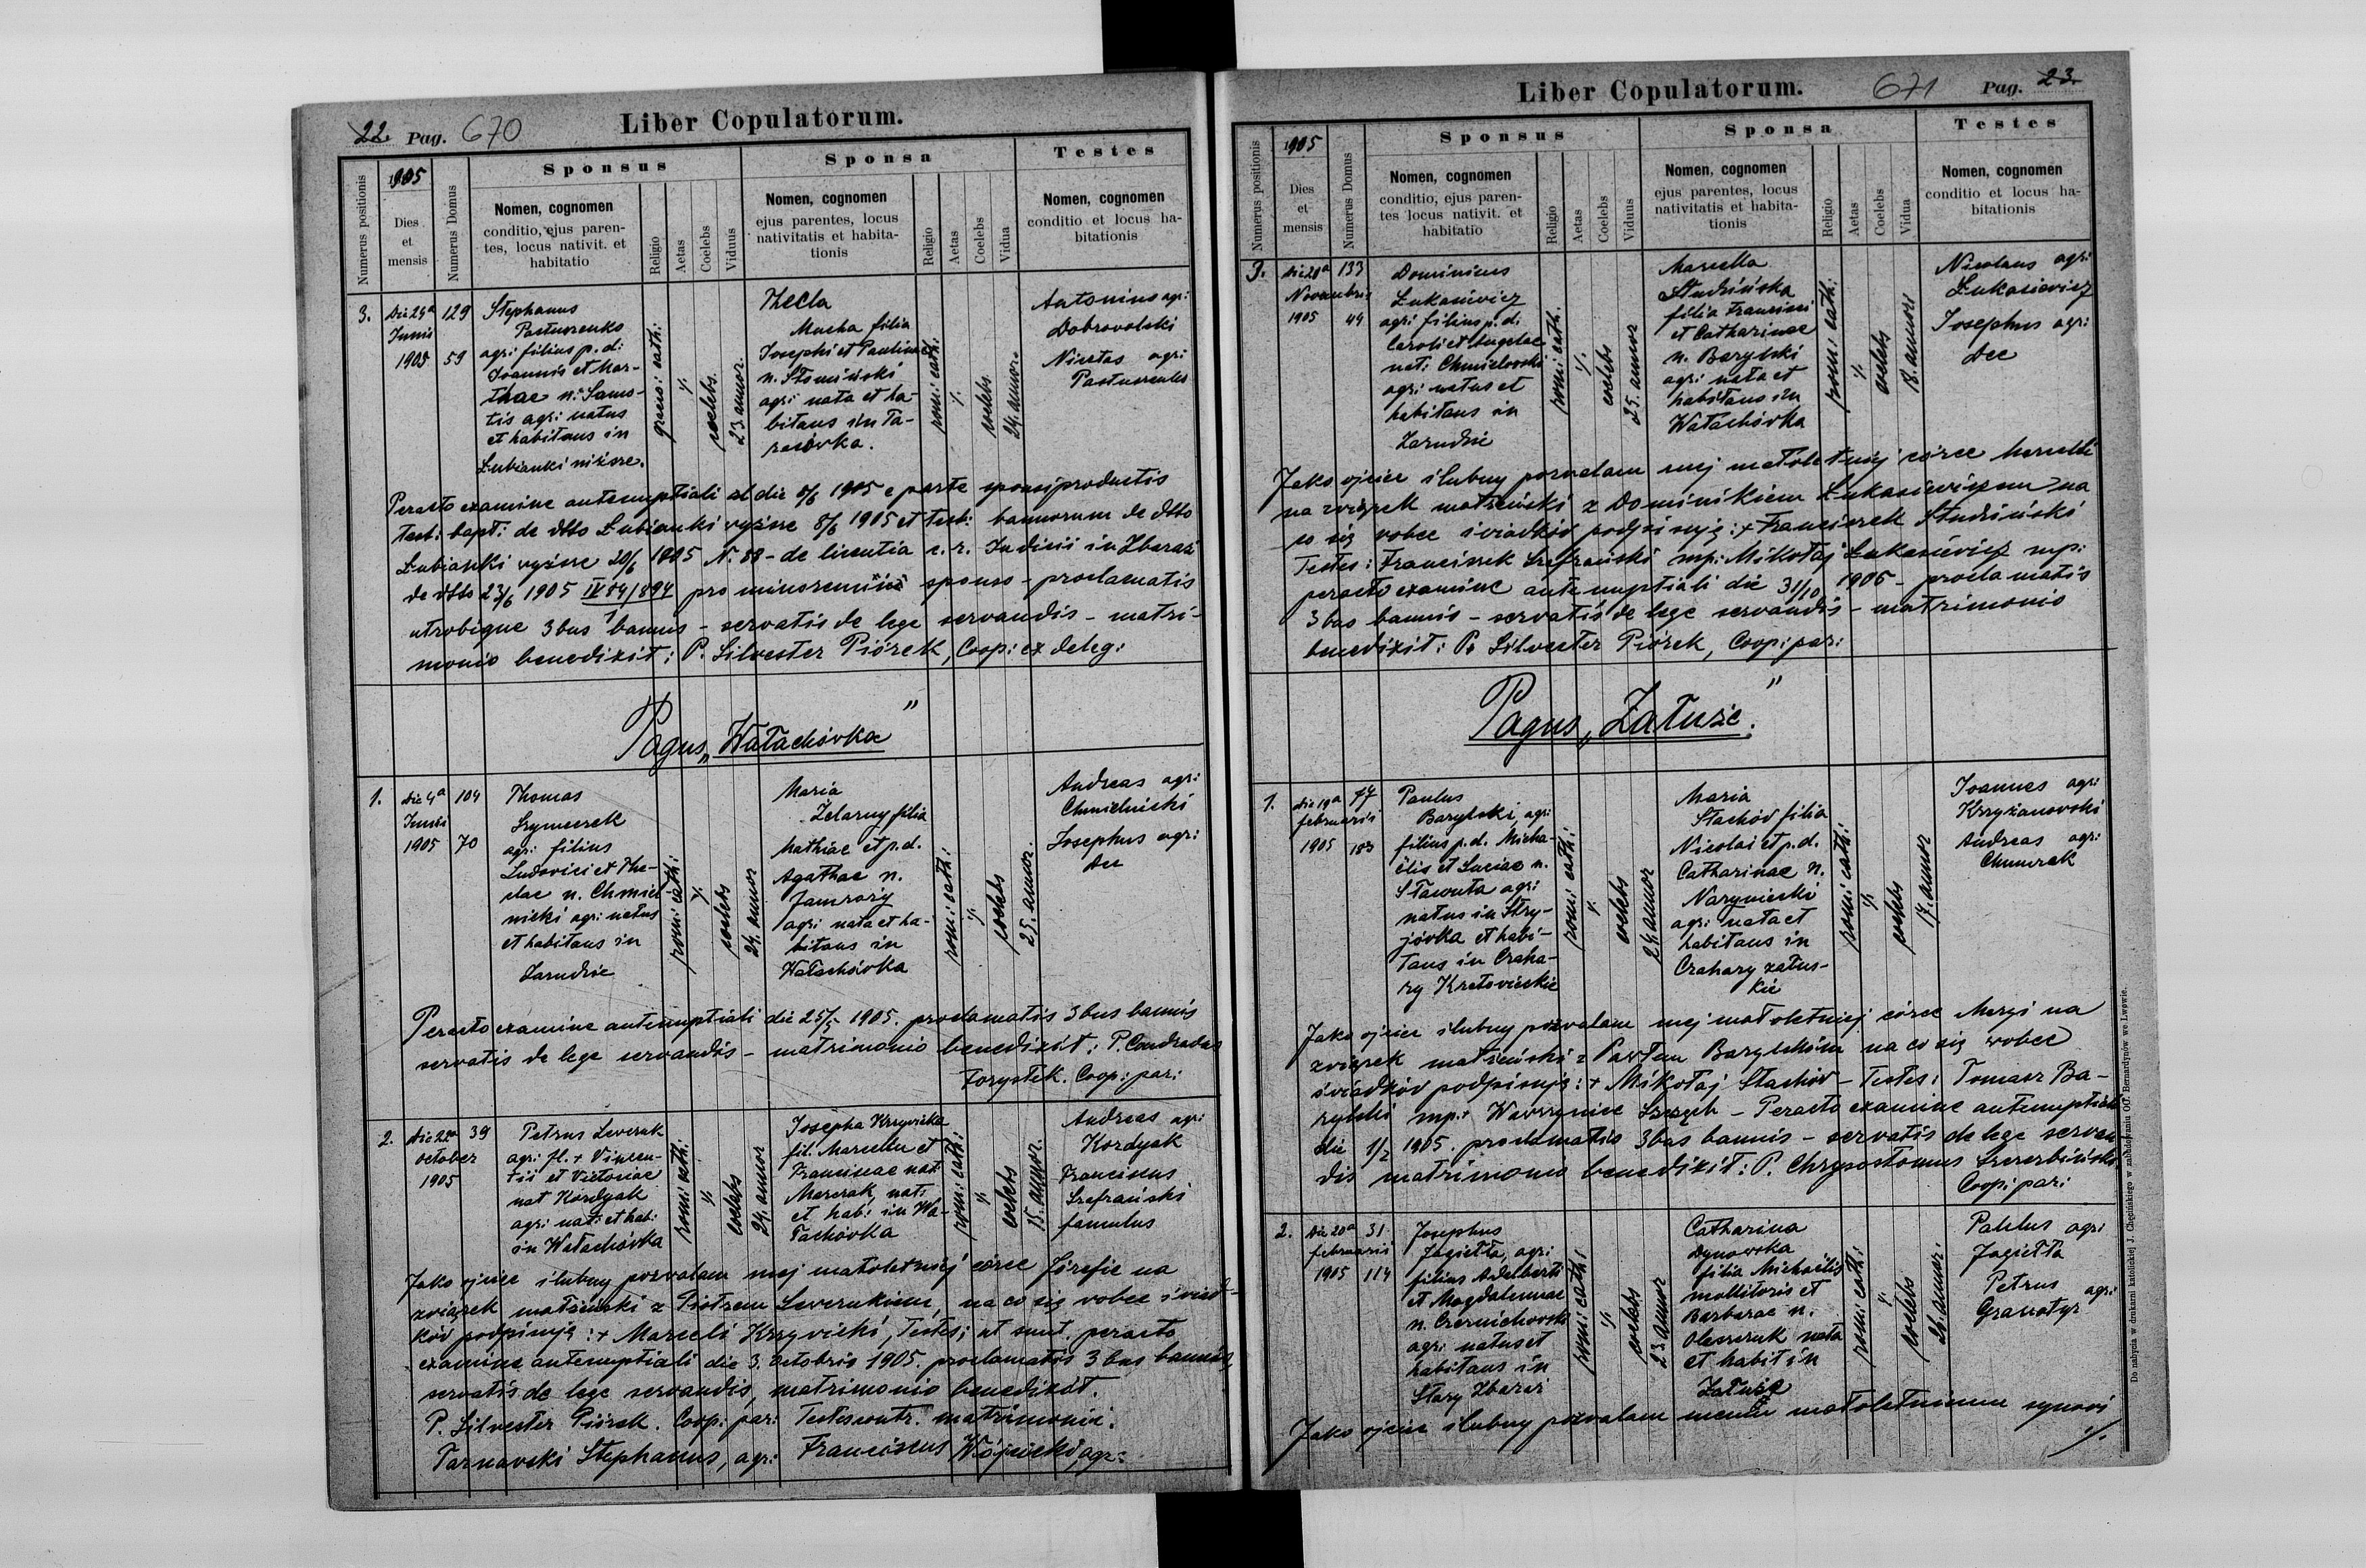 22. Pag. 670
Liber Copulatorum.
Numerus positionis
1905
Dies
et
mensis
Numerus Domus
Sponsus
Nomen, cognomen
conditio, ejus paren-
tes, locus nativit. et
habitatio
Religio
Aetas
Coelebs
Viduus
Sponsa
Nomen, cognomen
ejus parentes, locus
nativitatis et habita-
tionis
Religio
Aetas
Coelebs
Vidua
Testes
Nomen, cognomen
conditio et locus ha-
bitationis
3.
Die 24a
Junii
1905
129
59
Stephanus
Pastuszenko
agr: filius p. d:
Joannis et Mar-
thae n:
agr: natus
et habitans in
Łubianki niższe.
coelebs.
23. annor.
Thecla
Mucha filia
Josephi et Paulinae
n. Słomiński
agr: nata et ha-
bitans in Ta-
rasówka.
rom: cath:
coelebs
24. annor.
Antonius agr:
Dobrovolski
Nicetas agr:
Peracto examine antenuptiali die 8/6 1905 e parte sponsi productis
test: bapt: de dtto Łubianki wyższe 8/6 1905 et test: bannorum de dtto
Łubianki wyższe 20/6 1905 N. 88 - de licentia c. r. Judicii in Zbaraż
de dtto 23/6 1905 IV 84/894 pro minorenni sponso - proclamatis
utrobique 3bus bannis - servatis de lege servandis - matri-
monio benedixit: P. Silvester Piórek, Coop: ex deleg:
Pagus „Wałachówka"
1.
Die 4a
Junii
1905
104
70
Thomas
Szymczek
agr: filius
Ludovici et The-
clae n. Chmiel
nicki agr: natus
et habitans in
Zarudzie
rom: cath:
coelebs
24. annor
Maria
Żelazny filia
Mathiae et p. d.
Agathae n.
Jamrozy
agr: nata et ha-
bitans in
Wałachówka
rom: cath:
coelebs
25. annor.
Andreas agr:
Chmielnicki
Josephus agr:
Dec
Peracto examine antenuptiali die 25/5 1905. proclamatis 3bus bannis
servatis de lege servandis - matrimonio benedixit: P. Conradus
Forystek. Coop: par:
2.
Die 22a
october
1905
39
Petrus Leverak
agr: fl. + Vincen-
tii et Victoriae
nat Kordyak
agr: nat: et hab:
in Wałachówka
rom: cath:
coelebs
24. annor
Josepha Krzywicka
fil. Marcelli et
Franciscae nat
Marczak, nat:
et hab: in Wa-
łachówka
rom: cath:
coelebs
15. annor.
Andreas agr:
Kordyak
Franciscus
Szefrański
famulus
Jako ojciec ślubny pozwalam mej małoletniej córce Józefie na
związek małżeński z Piotrem Leverukiem, na co się wobec świad-
ków podpisuję: + Marceli Krzywicki, Testes: ut sunt. peracto
examine antenuptiali die 3. octobris 1905. proclamatis 3 bus bannis,
servatis de lege servandis, matrimonio benedixit.
P. Silvester Piórek. Coop: par: Testes contr. matrimonii:
Tarnavski Stephanus, agr: Franciscus Wójcicki, agr:
Liber Copulatorum.
671 Pag. 23.
Numerus positionis
1905
Dies
et
mensis
Numerus Domus
Sponsus
Nomen, cognomen
conditio, ejus paren-
tes locus nativit. et
habitatio
Religio
Aetas
Coelebs
Viduus
Sponsa
Nomen, cognomen
ejus parentes, locus
nativitatis et habita-
tionis
Religio
Aetas
Coelebs
Vidua
Testes
Nomen, cognomen
conditio et locus ha-
bitationis
3.
Die 20a
Novembris
1905
133
44
Dominicus
Łukasiewicz
agr: filius p. d:
Caroli et Angelae
nat: Chmielovski
agr: natus et
habitans in
Zarudzie
rom: cath:
coelebs
25. annor
Marcella
Studzińska
filia Francisci
et Catharinae
n. Barylski
agr: nata et
habitans in
Wałachówka
rom: cath:
coelebs
18. annor
Nicolaus agr:
Łukasiewicz
Josephus agr:
Dec
Jako ojciec ślubny pozwalam mej małoletniej córce Marcelli
na związek małżeński z Dominikiem Łukasiewiczem na
co się wobec świadków podpisuję: + Franciszek Studziński
Testes: Franciszek Szefrański mp: Mikołaj Łukasiewicz mp:
peracto examine antenuptiali die 31/10 1905 - proclamatis
3 bus bannis - servatis de lege servandis - matrimonio
benedixit: P. Silvester Piórek, Coop: par:
Pagus „Załuże."
1.
Die 19a
februarii
1905
77
183
Paulus
Barylski, agr:
filius p. d. Micha-
ëlis et Luciae n.
Sławuta agr:
natus in Stry-
jówka et habi-
tans in Czaha-
ry Kretovieckie
rom: cath:
coelebs
24 annor
Maria
Stachów filia
Nicolai et p. d.
Catharinae n.
agr: nata et
habitans in
Czahary załus-
kie
rom: cath:
coelebs
17. annor
Joannes agr:
Krzyżanovski
Andreas agr:
Chmurak
Jako ojciec ślubny pozwalam mej małoletniej córce Maryi na
związek małżeński z Pawłem Barylskim na co się wobec
świadków podpisuję: + Mikołaj Stachów - Testes: Tomasz Ba-
rylski mp. + Wawrzyniec - Peracto examine antenuptiali
die 1/2 1905. proclamatis 3bus bannis - servatis de lege servan
dis matrimonio benedixit: P. Chrysostomus Szczerbiński
Coop: par:
2.
Die 20a
februarii
1905
31
114
Josephus
Jagiełła, agr:
filius Adalberti
et Magdalenae
n. Czernichovski
agr: natus et
habitans in
Stary Zbaraż
rom: cath:
coelebs
23 annor
Catharina
Dynowska
filia Michaëlis
mollitoris et
Barbarae n.
Oleszczuk nata
et habit in
Załuże
rom: cath:
coelebs
26. annor.
Paulus agr:
Jagiełła
Petrus agr:
Granatyr
Jako ojciec ślubny pozwalam memu małoletniemu synowi
./.
Do nabycia w drukarni katolickiej J. Chęcińskiego w zabudowaniu OO. Bernardynów we Lwowie.